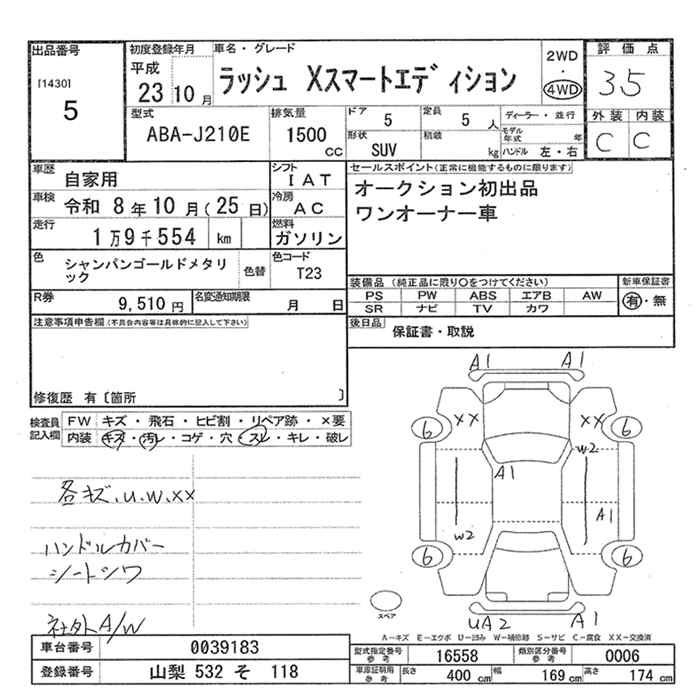 出品番号
[1430]
5
初度登録年月
平成
23 10 月
車名・グレード
ラッシュ Xスマートエディション
2WD
・
4WD
評価点
35
外装 内装
C C
型式
ABA-J210E
排気量
1500
CC
ドア
5
定員
5 人
形状
SUV
積載
kg
ディーラー・並行
モデル年式 年
ハンドル 左・右
車歴
自家用
シフト
IAT
車検
令和 8年10月(25日)
冷房
AC
走行
1万9千554 km
燃料
ガソリン
セールスポイント(正常に機能するものに限ります)
オークション初出品
ワンオーナー車
色
シャンパンゴールドメタリ
ック
色替
色コード
T23
R券
9,510 円
名変通知期限
月 日
装備品 (純正品に限り○をつけてください)
PS PW ABS エアB AW
SR ナビ TV カワ
新車保証書
有・無
後日品
保証書・取説
注意事項申告欄(不具合内容等は具体的に記入して下さい)
修復歴 有〔箇所 〕
検査員
記入欄
FW キズ・飛石・ヒビ割・リペア跡・×要
内装 キズ・汚レ・コゲ・穴・スレ・キレ・破レ
各キズ、U、W、XX
ハンドルカバー
シートシワ
社外A/W
A1 A1
XX XX
6 6
W2
A1
A1
W2
6 6
UA2 A1
スペア
A―キズ E―エクボ U―凹み W―補修跡 S―サビ C―腐食 XX―交換済
車台番号
0039183
登録番号
山梨 532 そ 118
型式指定番号
参考
16558
類別区分番号
参考
0006
車庫証明用
参考
長さ 400 cm
幅 169 cm
高さ 174 cm